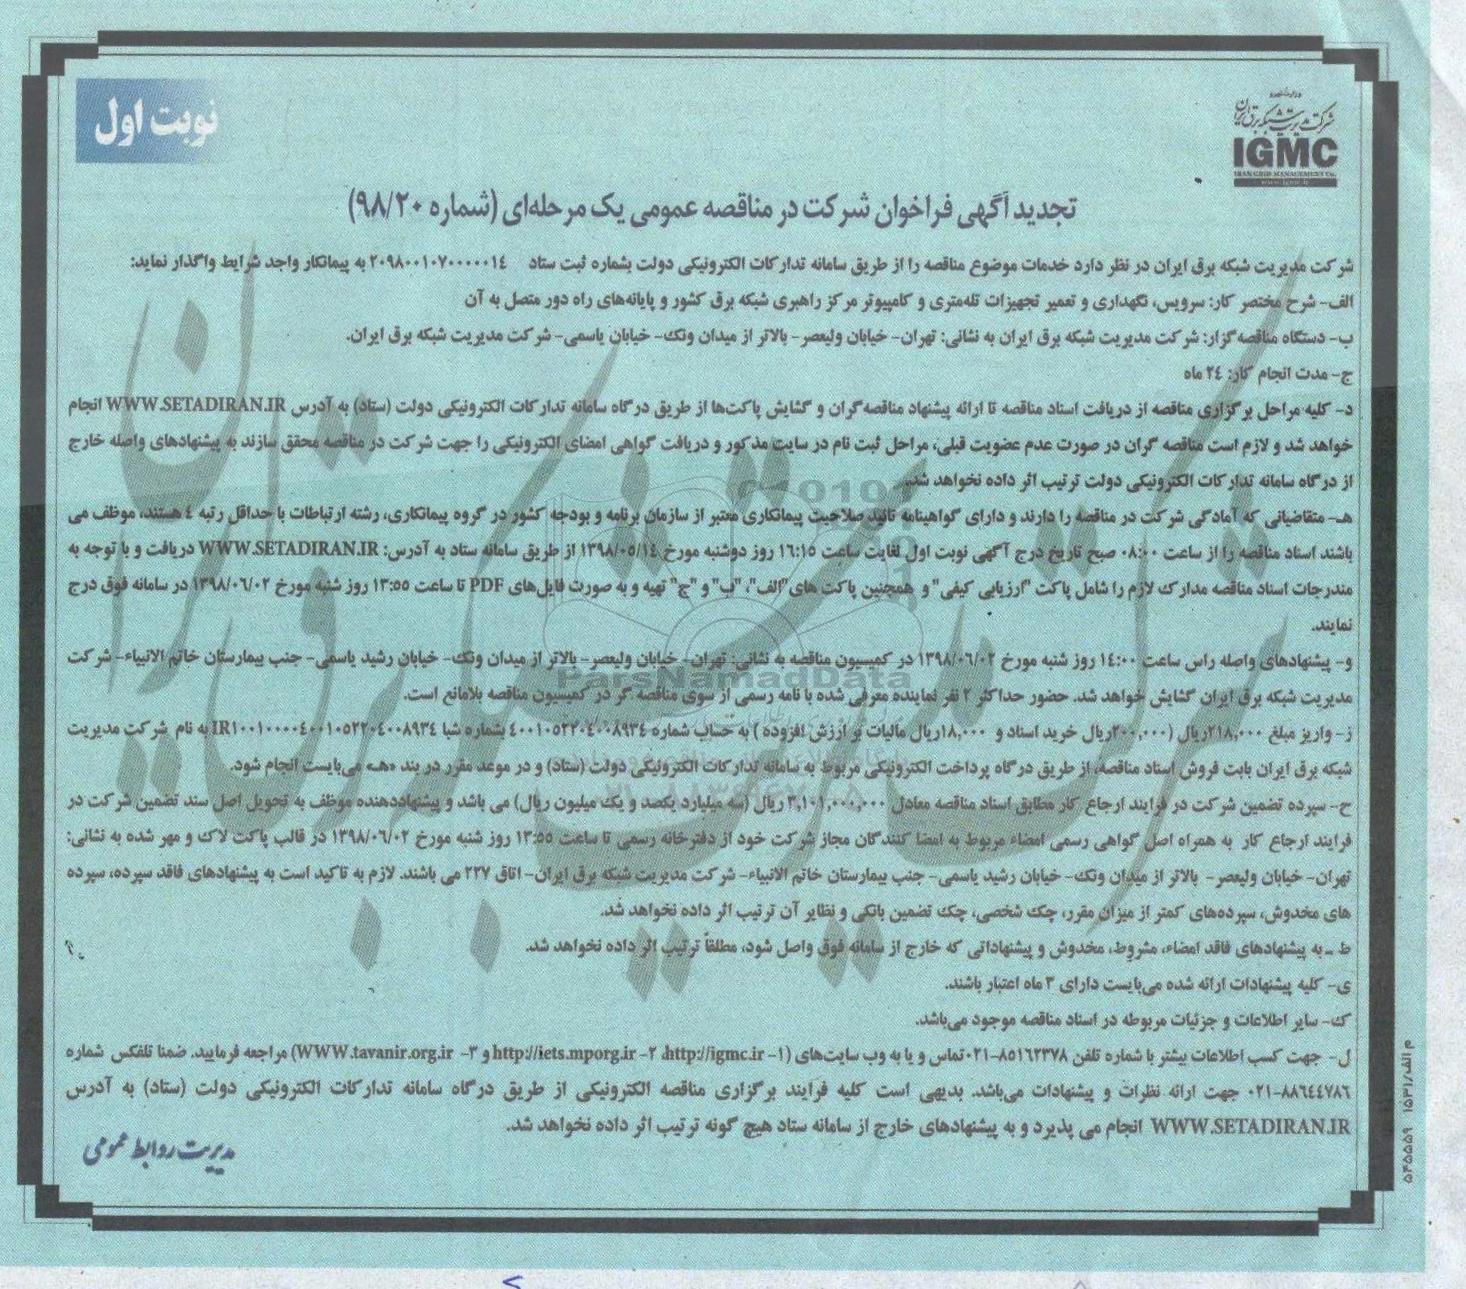 وزارت نیرو
شرکت مدیریت شبکه برق ایران
IGMC
IRAN GRID MANAGEMENT Co.
www.igmc.ir
نوبت اول
تجدید آگهی فراخوان شرکت در مناقصه عمومی یک مرحله‌ای (شماره ۹۸/۲۰)
شرکت مدیریت شبکه برق ایران در نظر دارد خدمات موضوع مناقصه را از طریق سامانه تدارکات الکترونیکی دولت بشماره ثبت ستاد ۲۰۹۸۰۰۱۰۷۰۰۰۰۰۱۴ به پیمانکار واجد شرایط واگذار نماید:
الف- شرح مختصر کار: سرویس، نگهداری و تعمیر تجهیزات تله‌متری و کامپیوتر مرکز راهبری شبکه برق کشور و پایانه‌های راه دور متصل به آن
ب- دستگاه مناقصه‌گزار: شرکت مدیریت شبکه برق ایران به نشانی: تهران- خیابان ولیعصر- بالاتر از میدان ونک- خیابان یاسمی- شرکت مدیریت شبکه برق ایران.
ج- مدت انجام کار: ۲۴ ماه
د- کلیه مراحل برگزاری مناقصه از دریافت اسناد مناقصه تا ارائه پیشنهاد مناقصه‌گران و گشایش پاکت‌ها از طریق درگاه سامانه تدارکات الکترونیکی دولت (ستاد) به آدرس WWW.SETADIRAN.IR انجام
خواهد شد و لازم است مناقصه گران در صورت عدم عضویت قبلی، مراحل ثبت نام در سایت مذکور و دریافت گواهی امضای الکترونیکی را جهت شرکت در مناقصه محقق سازند به پیشنهادهای واصله خارج
از درگاه سامانه تدارکات الکترونیکی دولت ترتیب اثر داده نخواهد شد.
هـ- متقاضیانی که آمادگی شرکت در مناقصه را دارند و دارای گواهینامه تائید صلاحیت پیمانکاری معتبر از سازمان برنامه و بودجه کشور در گروه پیمانکاری، رشته ارتباطات با حداقل رتبه ٤ هستند، موظف می
باشند اسناد مناقصه را از ساعت ۰۸:۰۰ صبح تاریخ درج آگهی نوبت اول لغایت ساعت ۱۶:۱۵ روز دوشنبه مورخ ۱۳۹۸/۰۵/۱٤ از طریق سامانه ستاد به آدرس: WWW.SETADIRAN.IR دریافت و با توجه به
مندرجات اسناد مناقصه مدارک لازم را شامل پاکت "ارزیابی کیفی" و همچنین پاکت های "الف"، "ب" و "ج" تهیه و به صورت فایل‌های PDF تا ساعت ۱۳:۵۵ روز شنبه مورخ ۱۳۹۸/۰۶/۰۲ در سامانه فوق درج
نمایند.
و- پیشنهادهای واصله راس ساعت ۱٤:۰۰ روز شنبه مورخ ۱۳۹۸/۰۶/۰۲ در کمیسیون مناقصه به نشانی: تهران- خیابان ولیعصر- بالاتر از میدان ونک- خیابان رشید یاسمی- جنب بیمارستان خاتم الانبیاء- شرکت
مدیریت شبکه برق ایران گشایش خواهد شد. حضور حداکثر ۲ نفر نماینده معرفی شده با نامه رسمی از سوی مناقصه گر در کمیسیون مناقصه بلامانع است.
ز- واریز مبلغ ۲۱۸,۰۰۰ریال (۲۰۰,۰۰۰ریال خرید اسناد و ۱۸,۰۰۰ریال مالیات بر ارزش افزوده) به حساب شماره ٤۰۰۱۰۵۲۲۰٤۰۰۸۹۳٤ بشماره شبا IR۱۰۰۱۰۰۰۰٤۰۰۱۰۵۲۲۰٤۰۰۸۹۳٤ به نام شرکت مدیریت
شبکه برق ایران بابت فروش اسناد مناقصه، از طریق درگاه پرداخت الکترونیکی مربوط به سامانه تدارکات الکترونیکی دولت (ستاد) و در موعد مقرر در بند «هـ» می‌بایست انجام شود.
ح- سپرده تضمین شرکت در فرایند ارجاع کار مطابق اسناد مناقصه معادل ۳,۱۰۱,۰۰۰,۰۰۰ ریال (سه میلیارد یکصد و یک میلیون ریال) می باشد و پیشنهاددهنده موظف به تحویل اصل سند تضمین شرکت در
فرایند ارجاع کار به همراه اصل گواهی رسمی امضاء مربوط به امضا کنندگان مجاز شرکت خود از دفترخانه رسمی تا ساعت ۱۳:۵۵ روز شنبه مورخ ۱۳۹۸/۰۶/۰۲ در قالب پاکت لاک و مهر شده به نشانی:
تهران- خیابان ولیعصر- بالاتر از میدان ونک- خیابان رشید یاسمی- جنب بیمارستان خاتم الانبیاء- شرکت مدیریت شبکه برق ایران- اتاق ۲۳۷ می باشند. لازم به تاکید است به پیشنهادهای فاقد سپرده، سپرده
های مخدوش، سپرده‌های کمتر از میزان مقرر، چک شخصی، چک تضمین بانکی و نظایر آن ترتیب اثر داده نخواهد شد.
ط - به پیشنهادهای فاقد امضاء، مشروط، مخدوش و پیشنهاداتی که خارج از سامانه فوق واصل شود، مطلقاً ترتیب اثر داده نخواهد شد.
ی- کلیه پیشنهادات ارائه شده می‌بایست دارای ۳ ماه اعتبار باشند.
ک- سایر اطلاعات و جزئیات مربوطه در اسناد مناقصه موجود می‌باشد.
ل- جهت کسب اطلاعات بیشتر با شماره تلفن ۸۵۱۶۲۳۷۸-۰۲۱ تماس و یا به وب سایت‌های (۱- http://igmc.ir، ۲- http://iets.mporg.ir و ۳- WWW.tavanir.org.ir) مراجعه فرمایید. ضمنا تلفکس شماره
۸۸٦٤٤۷۸٦-۰۲۱ جهت ارائه نظرات و پیشنهادات می‌باشد. بدیهی است کلیه فرایند برگزاری مناقصه الکترونیکی از طریق درگاه سامانه تدارکات الکترونیکی دولت (ستاد) به آدرس
WWW.SETADIRAN.IR انجام می پذیرد و به پیشنهادهای خارج از سامانه ستاد هیچ گونه ترتیب اثر داده نخواهد شد.
مدیریت روابط عمومی
م الف/۱۵۳۱ ۵۴۵۵۵۹
ParsNamadData